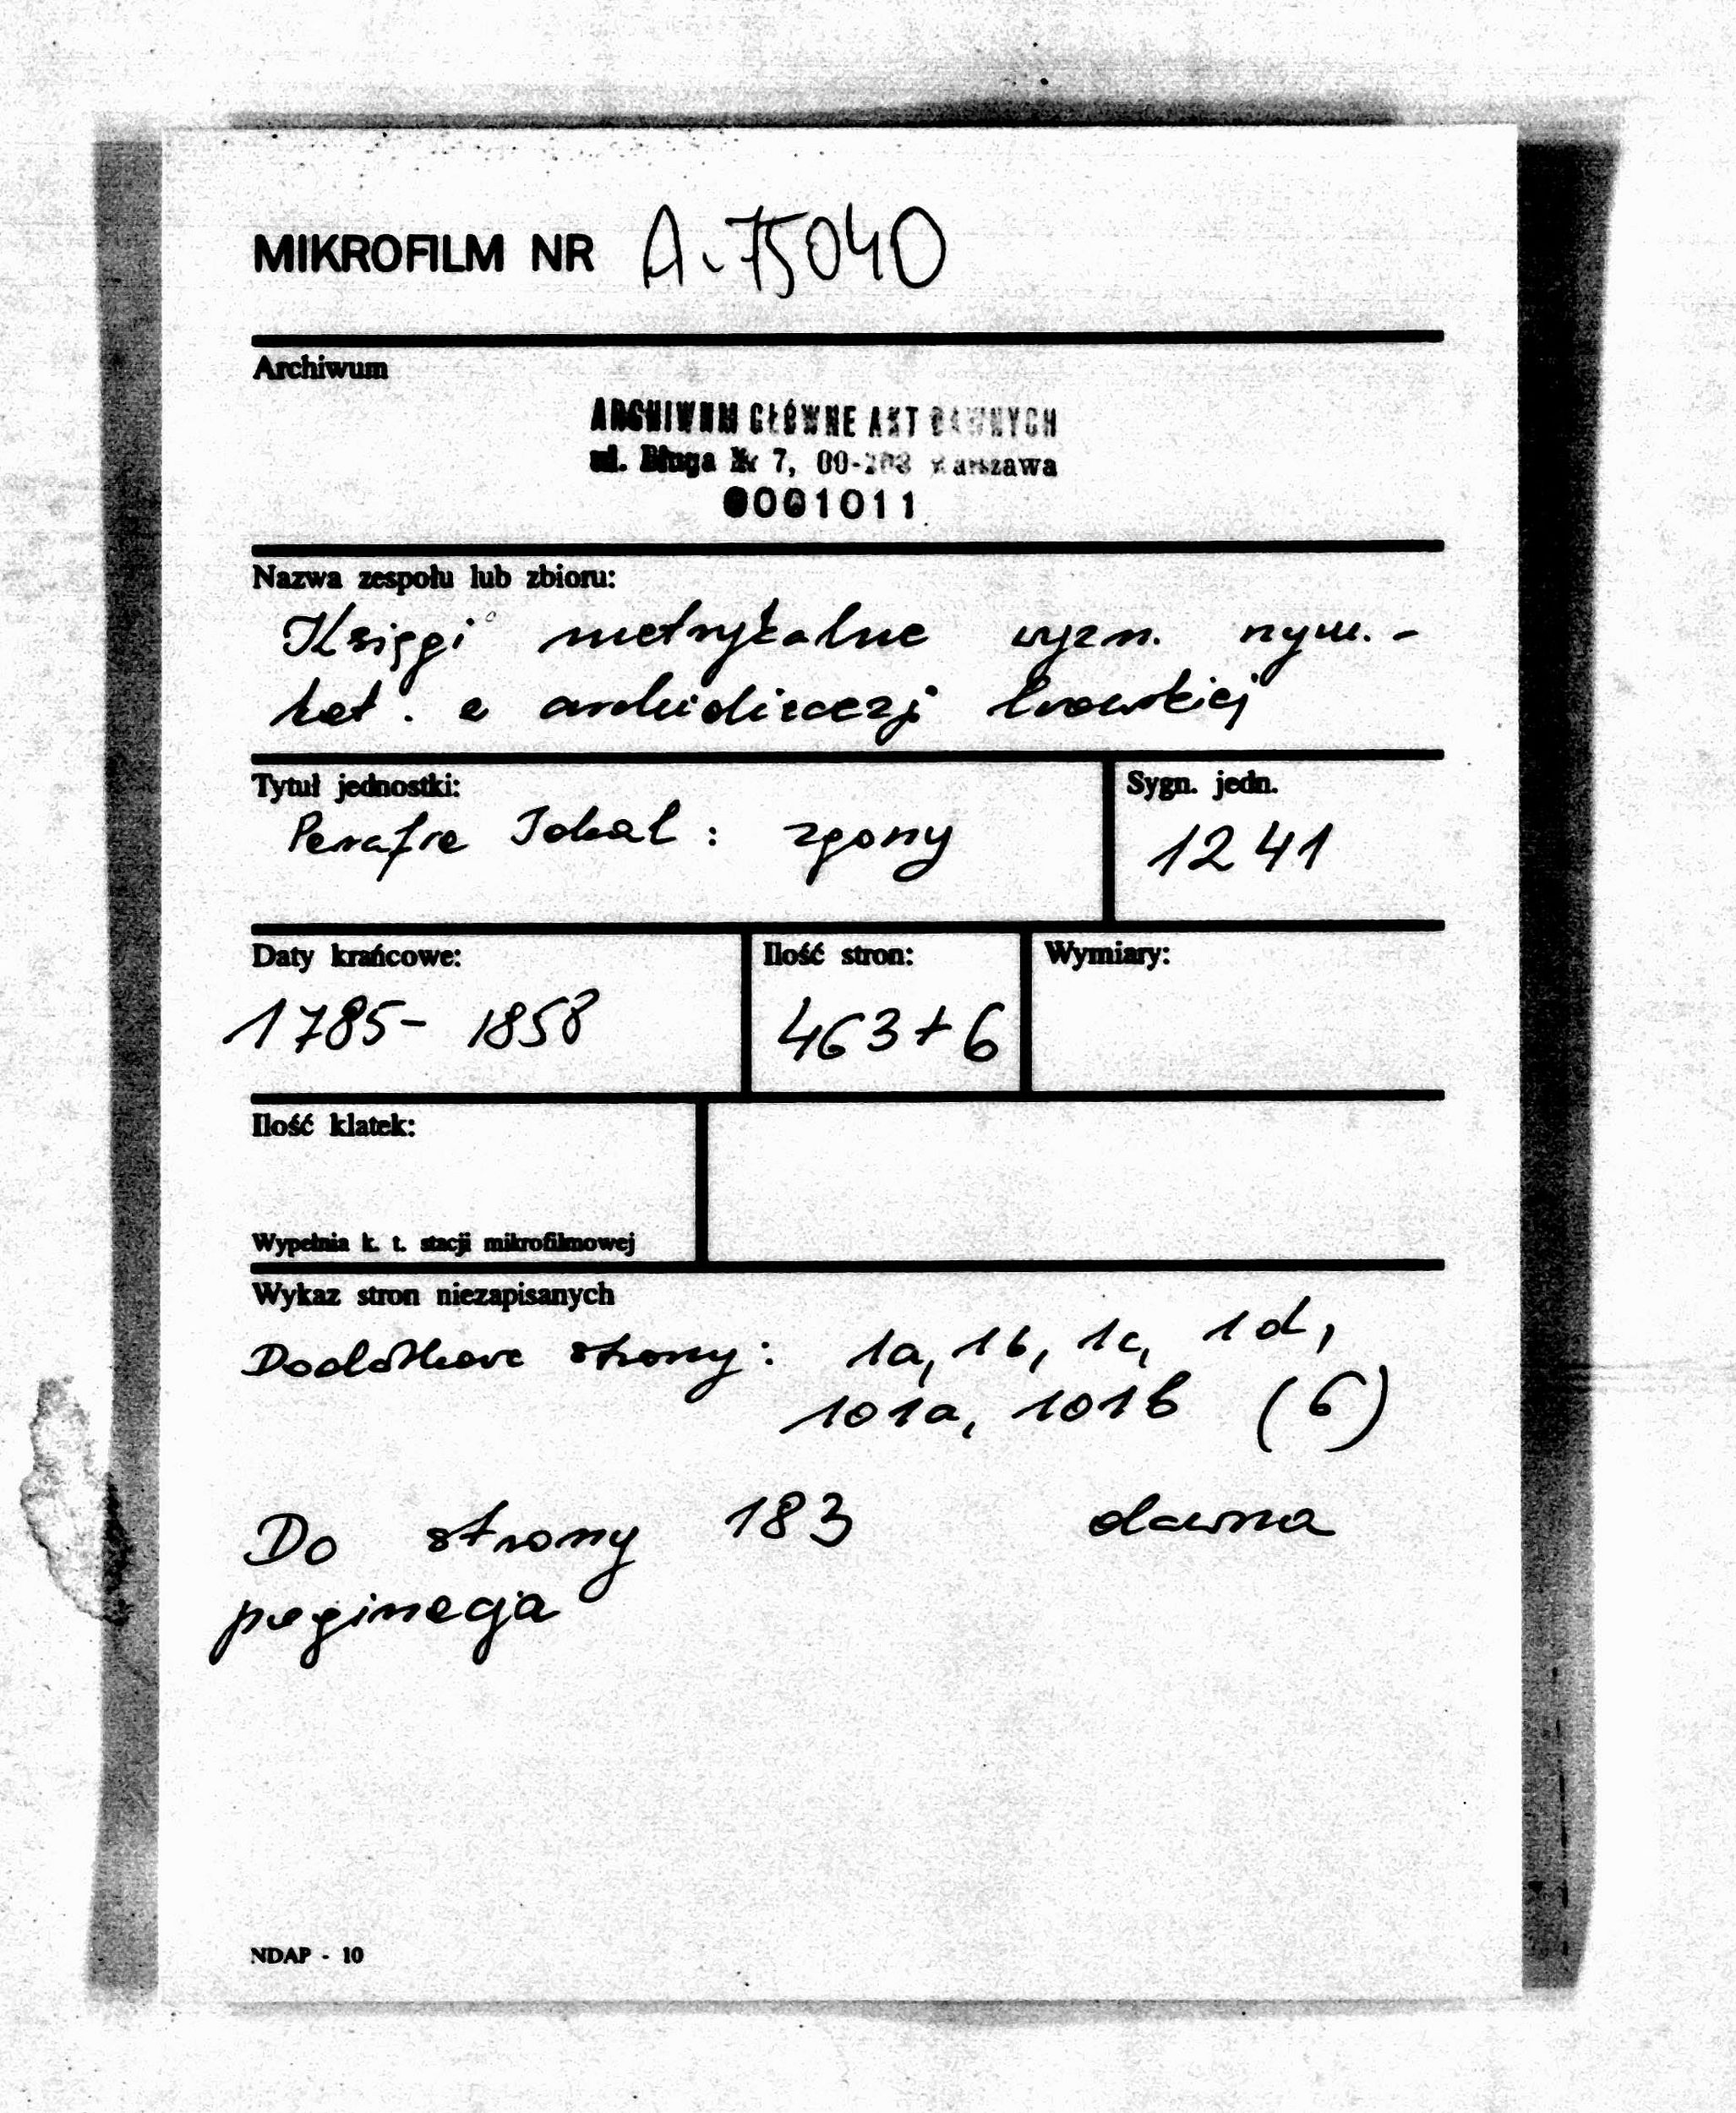 MIKROFILM NR A-75040
Archiwum
ARCHIWUM GŁÓWNE AKT DAWNYCH
ul. Długa Nr 7, 00-263 Warszawa
0001011
Nazwa zespołu lub zbioru:
Księgi metrykalne wyzn. rzym.-
kat. z archidiecezji lwowskiej
Tytuł jednostki:
Sygn. jedn.
Parafia Sokal : zgony
1241
Daty krańcowe:
Ilość stron:
Wymiary:
1785- 1858
463+6
Ilość klatek:
Wypełnia k. t. stacji mikrofilmowej
Wykaz stron niezapisanych
Dodatkowe strony: 1a, 1b, 1c, 1d,
101a, 101b (6)
Do strony 183 dawna
paginacja
NDAP - 10